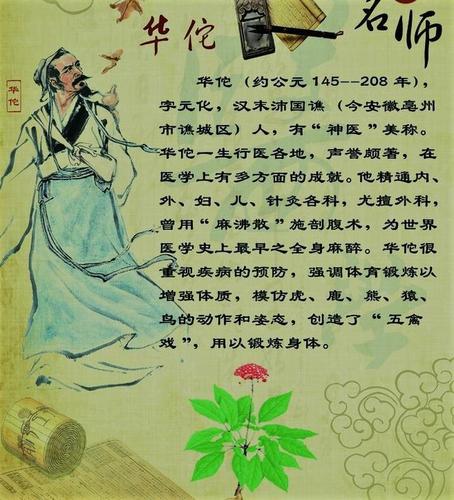 华佗
名师
华佗
华佗（约公元145--208年），
字元化，汉末沛国谯（今安徽亳州
市谯城区）人，有“神医”美称。
华佗一生行医各地，声誉颇著，在
医学上有多方面的成就。他精通内、
外、妇、儿、针灸各科，尤擅外科，
曾用“麻沸散”施剖腹术，为世界
医学史上最早之全身麻醉。华佗很
重视疾病的预防，强调体育锻炼以
增强体质，模仿虎、鹿、熊、猿、
鸟的动作和姿态，创造了“五禽
戏”，用以锻炼身体。